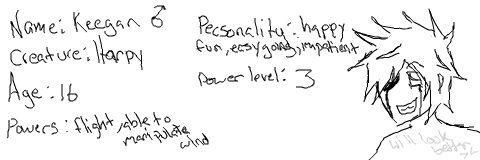 Name: Keegan ♂
Creature: Harpy
Age: 16
Powers: flight, able to
manipulate
wind
Personality: happy
fun, easygoing, impatient
Power level: 3
Will look
better >.<